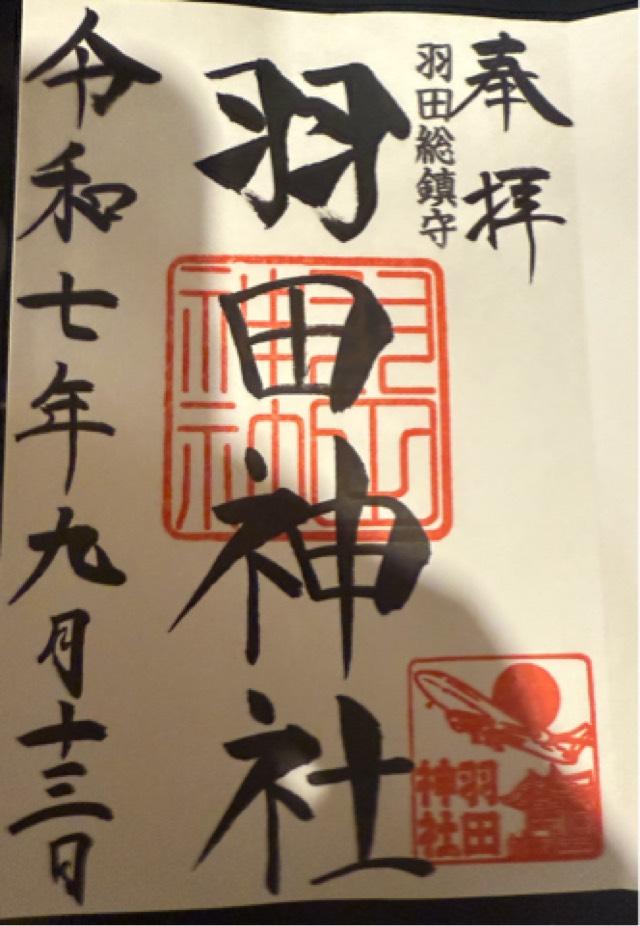 奉拝
羽田総鎮守
羽田神社
令和七年九月十三日
羽田
神社